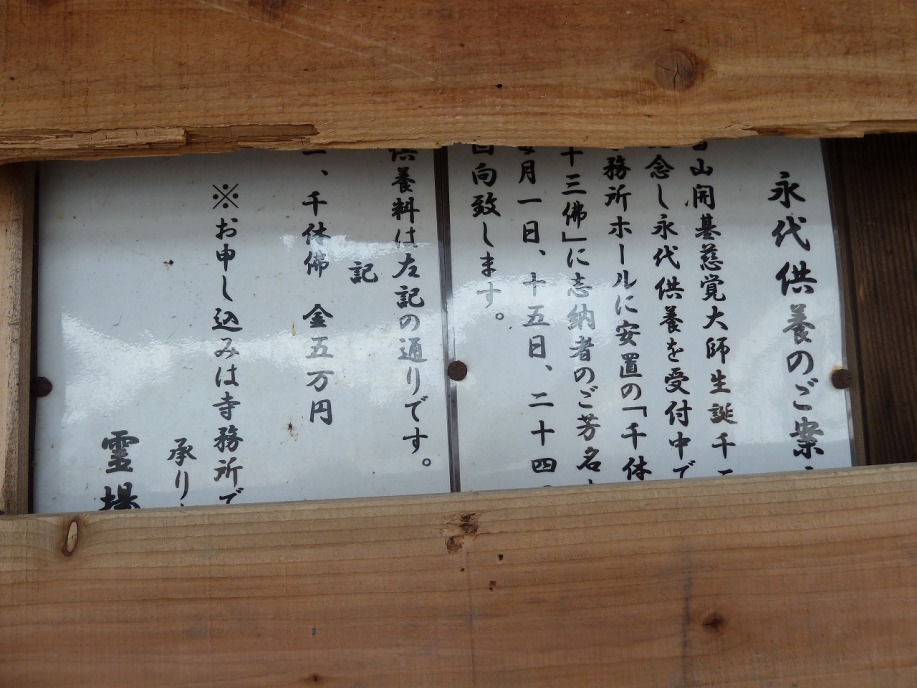 永代供養のご案
山開基慈覚大師生誕千
念し永代供養を受付中で
務所ホールに安置の「千体
十三佛」に志納者のご芳名
月一日、十五日、二十四
回向致します。
供養料は左記の通りです。
記
一、千体佛 金五万円
※お申し込みは寺務所で
承り
霊場